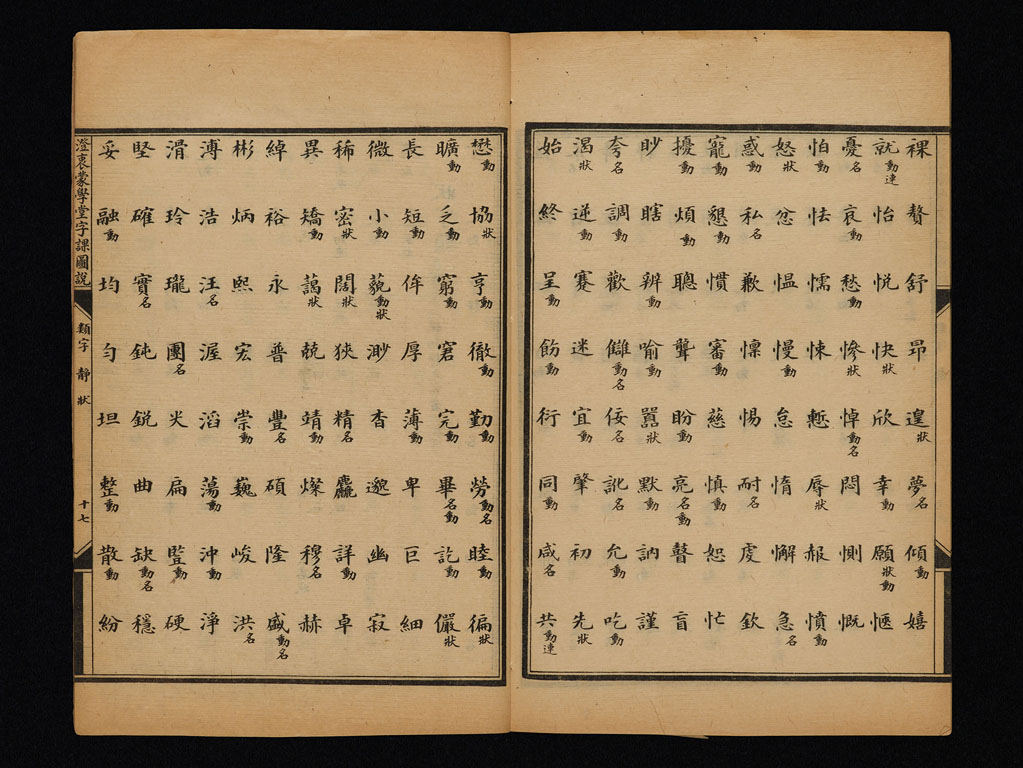 裸 贅 舒 昂 遑狀 夢名 傾動 嬉
就動連 怡 悅 快狀 欣 幸動 願狀動 愜
憂名 哀動 愁動 慘狀 悼動名 悶 惻 慨
怕動 怯 懦 悚 慙 辱狀 赧 憤動
怒狀 忿 慍 慢動 怠 惰 懈 急名
惑動 私名 歉 懍 惕 耐名 虔 欽
寵動 懇動 慣 審動 慈 慎動 恕 忙
擾動 煩動 聰 聾 盼動 亮名動 瞽 盲
眇 瞎 辨動 喻動 囂狀 默動 訥 謹
夸名 調動 歡 讎動名 佞名 訛名 允動 吃動
渴狀 逆動 賽 迷 宜動 肇 初 先狀
始 終 呈動 飭動 衍 同動 咸名 共動連
懋動 協狀 亨動 徹動 勤動 勞動名 睦動 徧狀
曠動 乏動 窮動 窘 完動 畢名動 訖動 儼狀
長 短動 侔 厚 薄動 卑 巨 細
微 小動 藐動狀 渺 杳 邈 幽 寂
稀 密狀 闊狀 狹 精名 麤 詳動 卓
異 矯動 藹狀 兢 靖動 燦 穆名 赫
綽 裕 永 普 豐名 碩 隆 盛動名
彬 炳 熙 宏 崇動 巍 峻 洪名
溥 浩 汪名 渥 滔 蕩動 沖動 淨
滑 玲 瓏 團名 尖 扁 豎動 硬
堅 確 實名 鈍 銳 曲 缺動名 穩
妥 融動 均 勻 坦 整動 散動 紛
澄衷蒙學堂字課圖說
類字 靜狀
十七